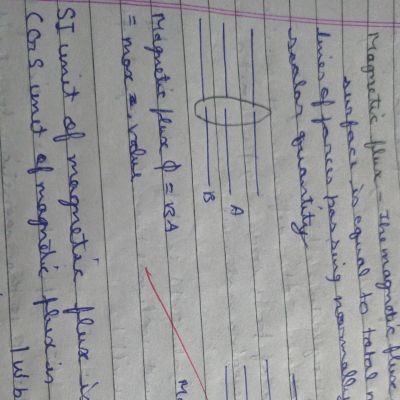 Magnetic flux - The magnetic flux
surface is equal to total
lines of forces passing normally
scalar quantity
A
B
Magnetic flux ϕ = BA
= max value
SI unit of magnetic flux is
CGS unit of magnetic flux is
1 wb